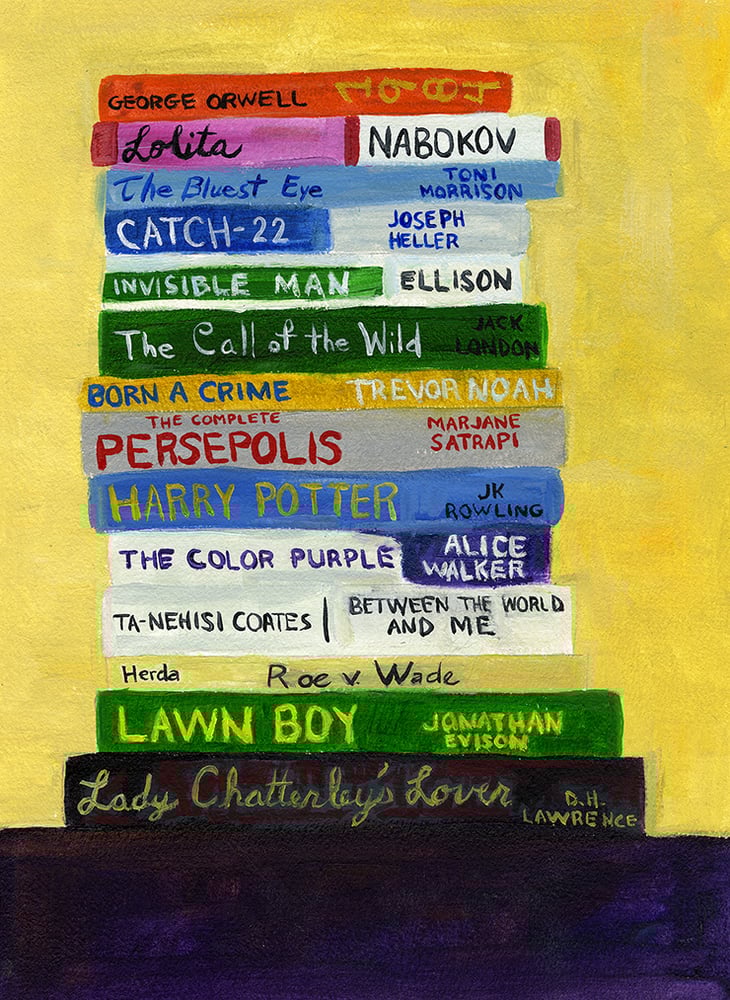 GEORGE ORWELL 1984
Lolita NABOKOV
The Bluest Eye TONI
MORRISON
CATCH-22 JOSEPH
HELLER
INVISIBLE MAN ELLISON
The Call of the Wild JACK
LONDON
BORN A CRIME TREVOR NOAH
THE COMPLETE
PERSEPOLIS MARJANE
SATRAPI
HARRY POTTER JK
ROWLING
THE COLOR PURPLE ALICE
WALKER
TA-NEHISI COATES | BETWEEN THE WORLD
AND ME
Herda Roe v. Wade
LAWN BOY JONATHAN
EVISON
Lady Chatterley's Lover D.H.
LAWRENCE